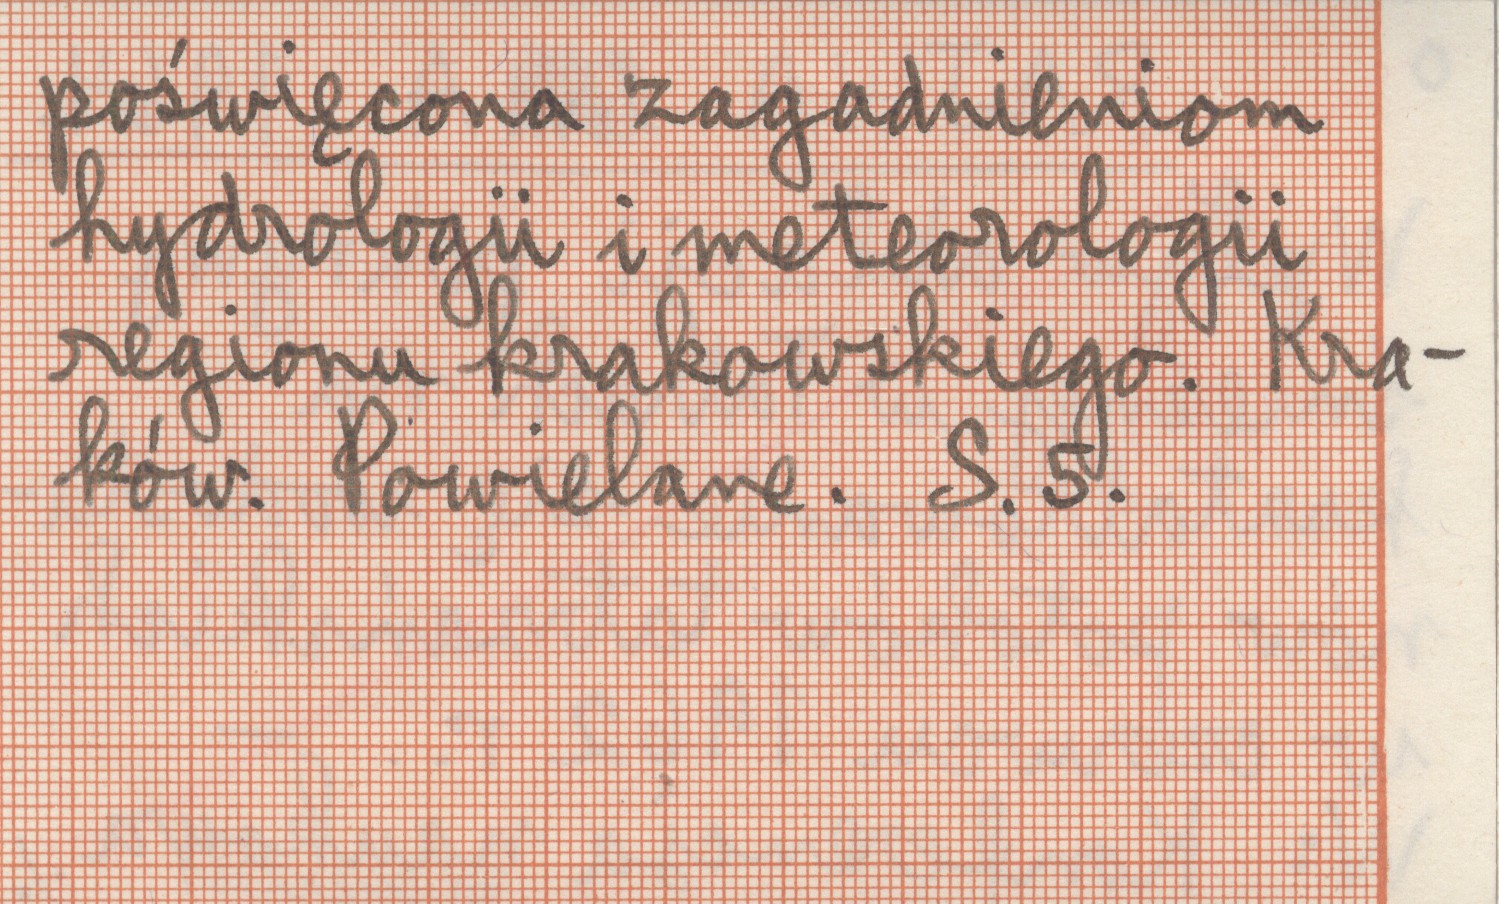 poświęcona zagadnieniom
hydrologii i meteorologii
regionu krakowskiego. Kra-
ków. Powielane. S. 5.